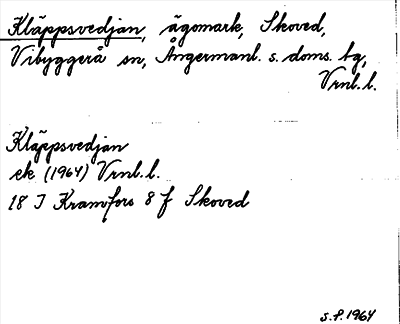 Kläppsvedjan, ägomark, Skoved,
Vibyggerå sn, Ångermanl. s. doms. tg,
Vrnl. l.
Kläppsvedjan
ek (1964) Vrnl. l.
18 I Kramfors 8 f Skoved
S.P. 1964